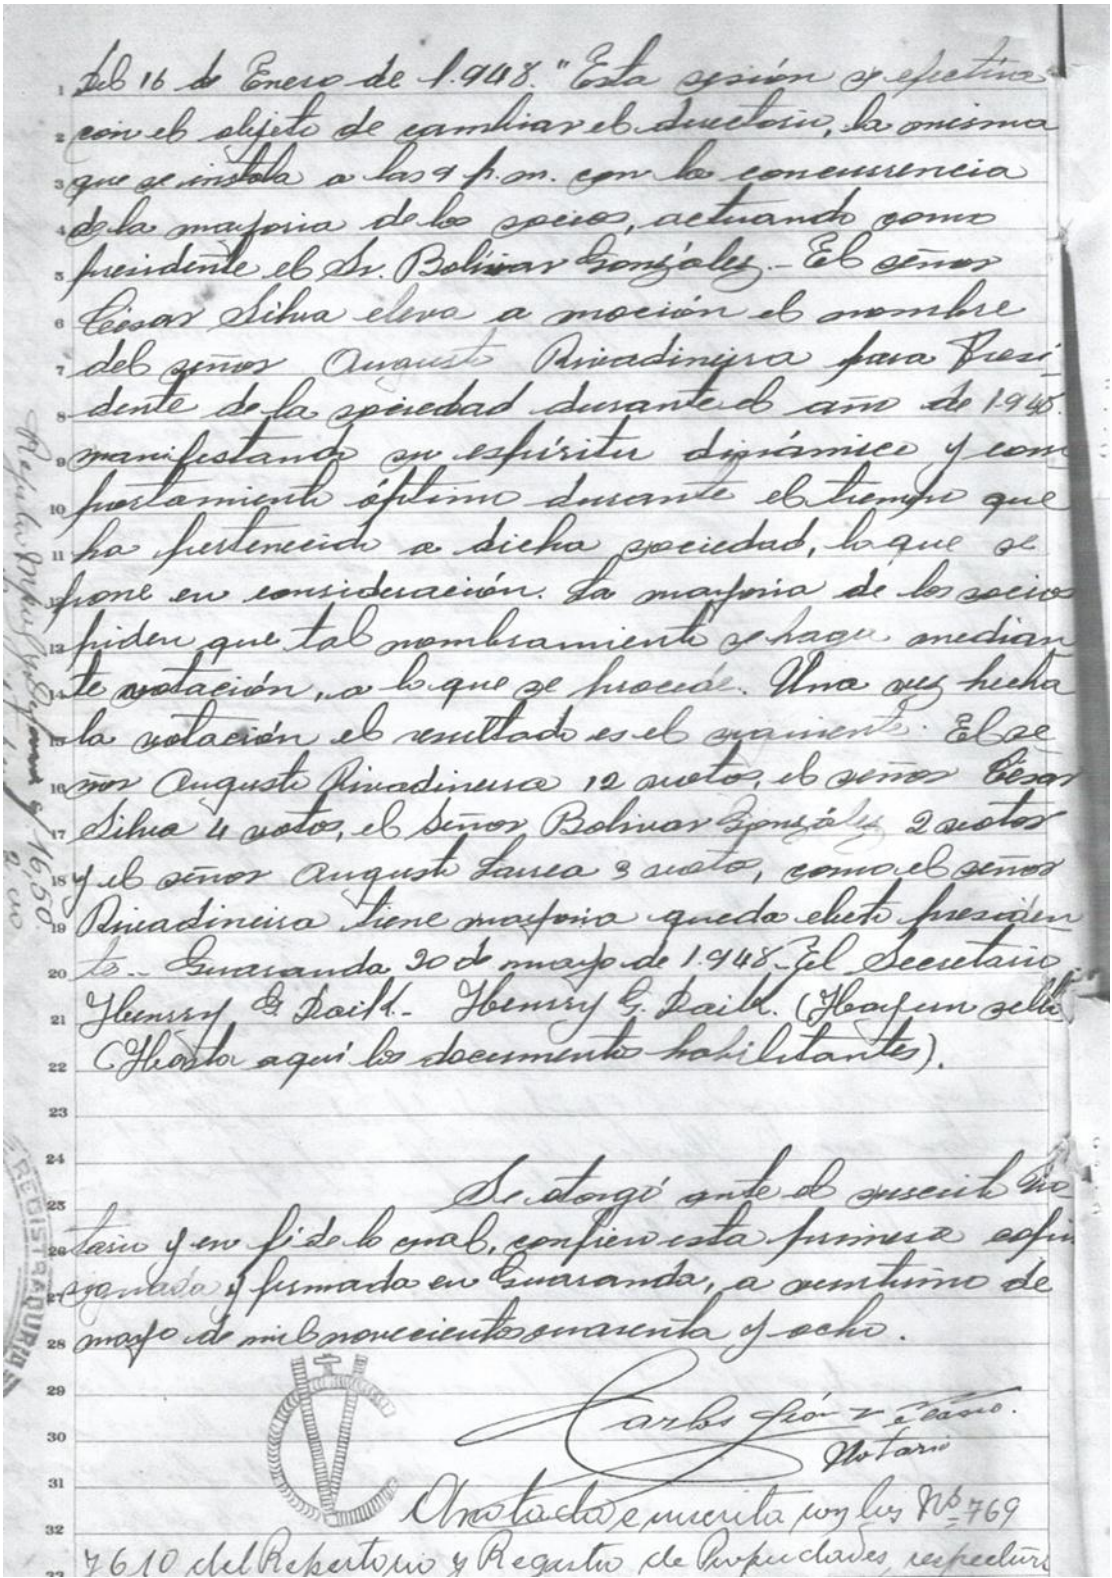 1 Del 16 de Enero de 1.948. "Esta sesión se efectúa
2 con el objeto de cambiar el directorio, la misma
3 que se instala a las 9 p.m. con la concurrencia
4 de la mayoria de los socios, actuando como
5 presidente el Sr. Bolivar González.- El señor
6 César Silva eleva a moción el nombre
7 del señor Augusto Rivadineira para Presi-
8 dente de la sociedad durante el año de 1948.
9 manifestando su espíritu dinámico y com
10 portamiento óptimo durante el tiempo que
11 ha pertenecido a dicha sociedad, lo que se
12 pone en consideración. La mayoria de los socios
13 piden que tal nombramiento se haga median
14 te votación, a lo que se procede. Una vez hecha
15 la votación el resultado es el siguiente: El se
16 ñor Augusto Rivadineira 12 votos, el señor César
17 Silva 4 votos, el Señor Bolivar González 2 votos
18 y el señor Augusto Laurea 3 votos, como el señor
19 Rivadineira tiene mayoria queda electo presiden
20 te.- Guaranda 20 de mayo de 1.948.- El Secretario
21 Henrry G. - Henrry G. (Hay un sello
22 (Hasta aquí los documentos habilitantes).
23
24
25 Se otorgó ante el suscrito No-
26 tario y en fe de lo cual, confiero esta primera copia
27 signada y firmada en Guaranda, a veintiuno de
28 mayo de mil novecientos cuarenta y ocho.
29 Carlos León
30 Notario
31 Anotada e inscrita con los Nos 769
32
33 y 610 del Repertorio y Registro de Propiedades, respectiva
16,50.
REGISTRADURIA